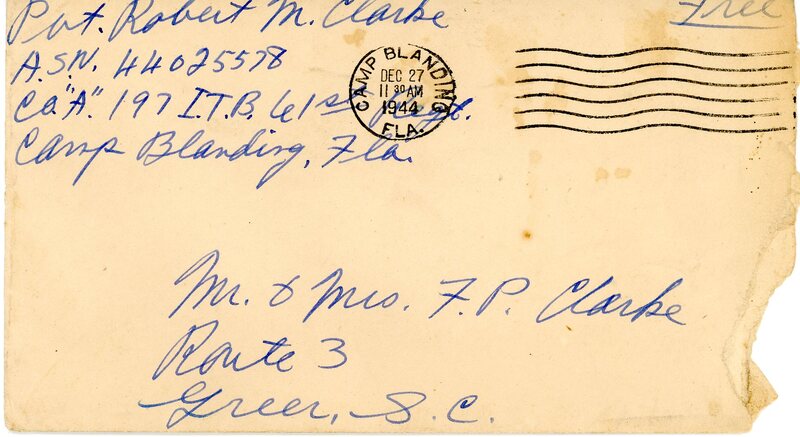 Pvt. Robert M. Clarke
Free
A.S.N. 44025578
Co. "A". 197 I.T.B. 61st Regt.
Camp Blanding, Fla.
CAMP BLANDING
DEC 27
11 30 AM
1944
FLA.
Mr. & Mrs. F. P. Clarke
Route 3
Greer, S. C.